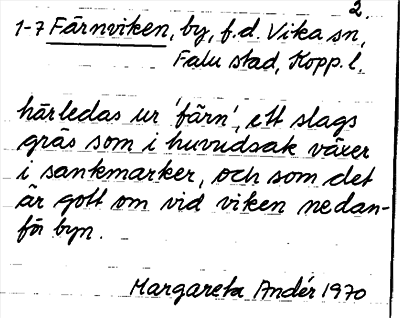 2.
1-7 Färnviken, by, f.d. Vika sn,
Falu stad, Kopp. l.
härledas ur 'färn', ett slags
gräs som i huvudsak växer
i sankmarker, och som det
är gott om vid viken nedan-
för byn.
Margareta Andér 1970